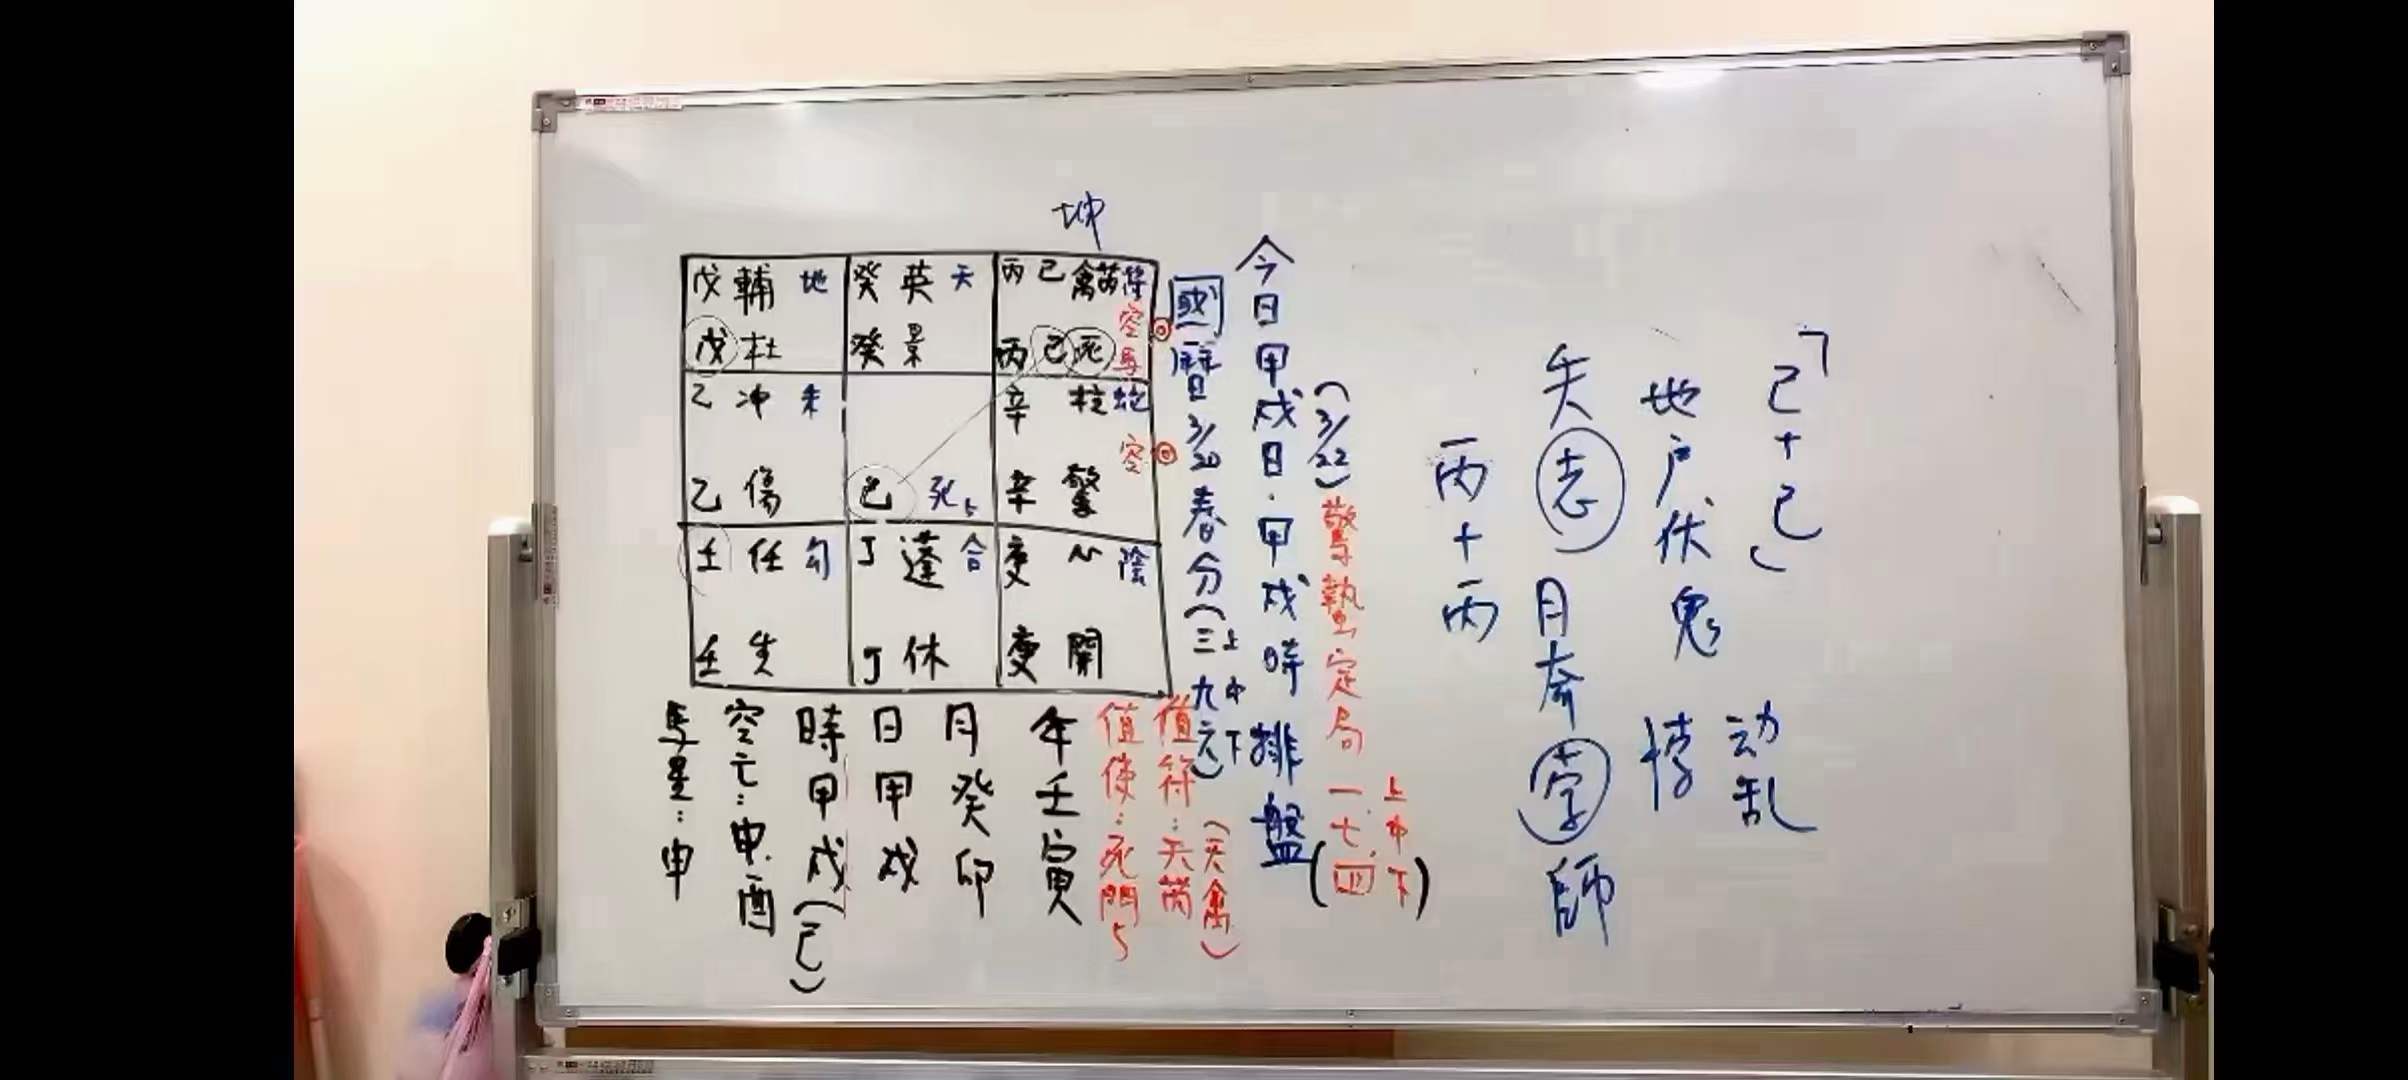 坤
戊 輔 地
戊 杜
癸 英 天
癸 景
丙 己 禽芮 符
空
丙 己 死 馬
乙 冲 朱
乙 傷
己 死5
辛 柱 蛇
空
辛 驚
壬 任 勾
壬 生
丁 蓬 合
丁 休
庚 心 陰
庚 開
「己+己」
动乱
地户伏鬼
悖
失志
月奇孛師
丙+丙
(3/22)驚蟄定局一七(四)
上中下
今日甲戌日·甲戌時排盤
國曆日3/20春分(三九六)
上中下
值符:天芮
(天禽)
值使:死門5
年壬寅
月癸卯
日甲戌
時甲戌(己)
空亡:申.酉
馬星:申